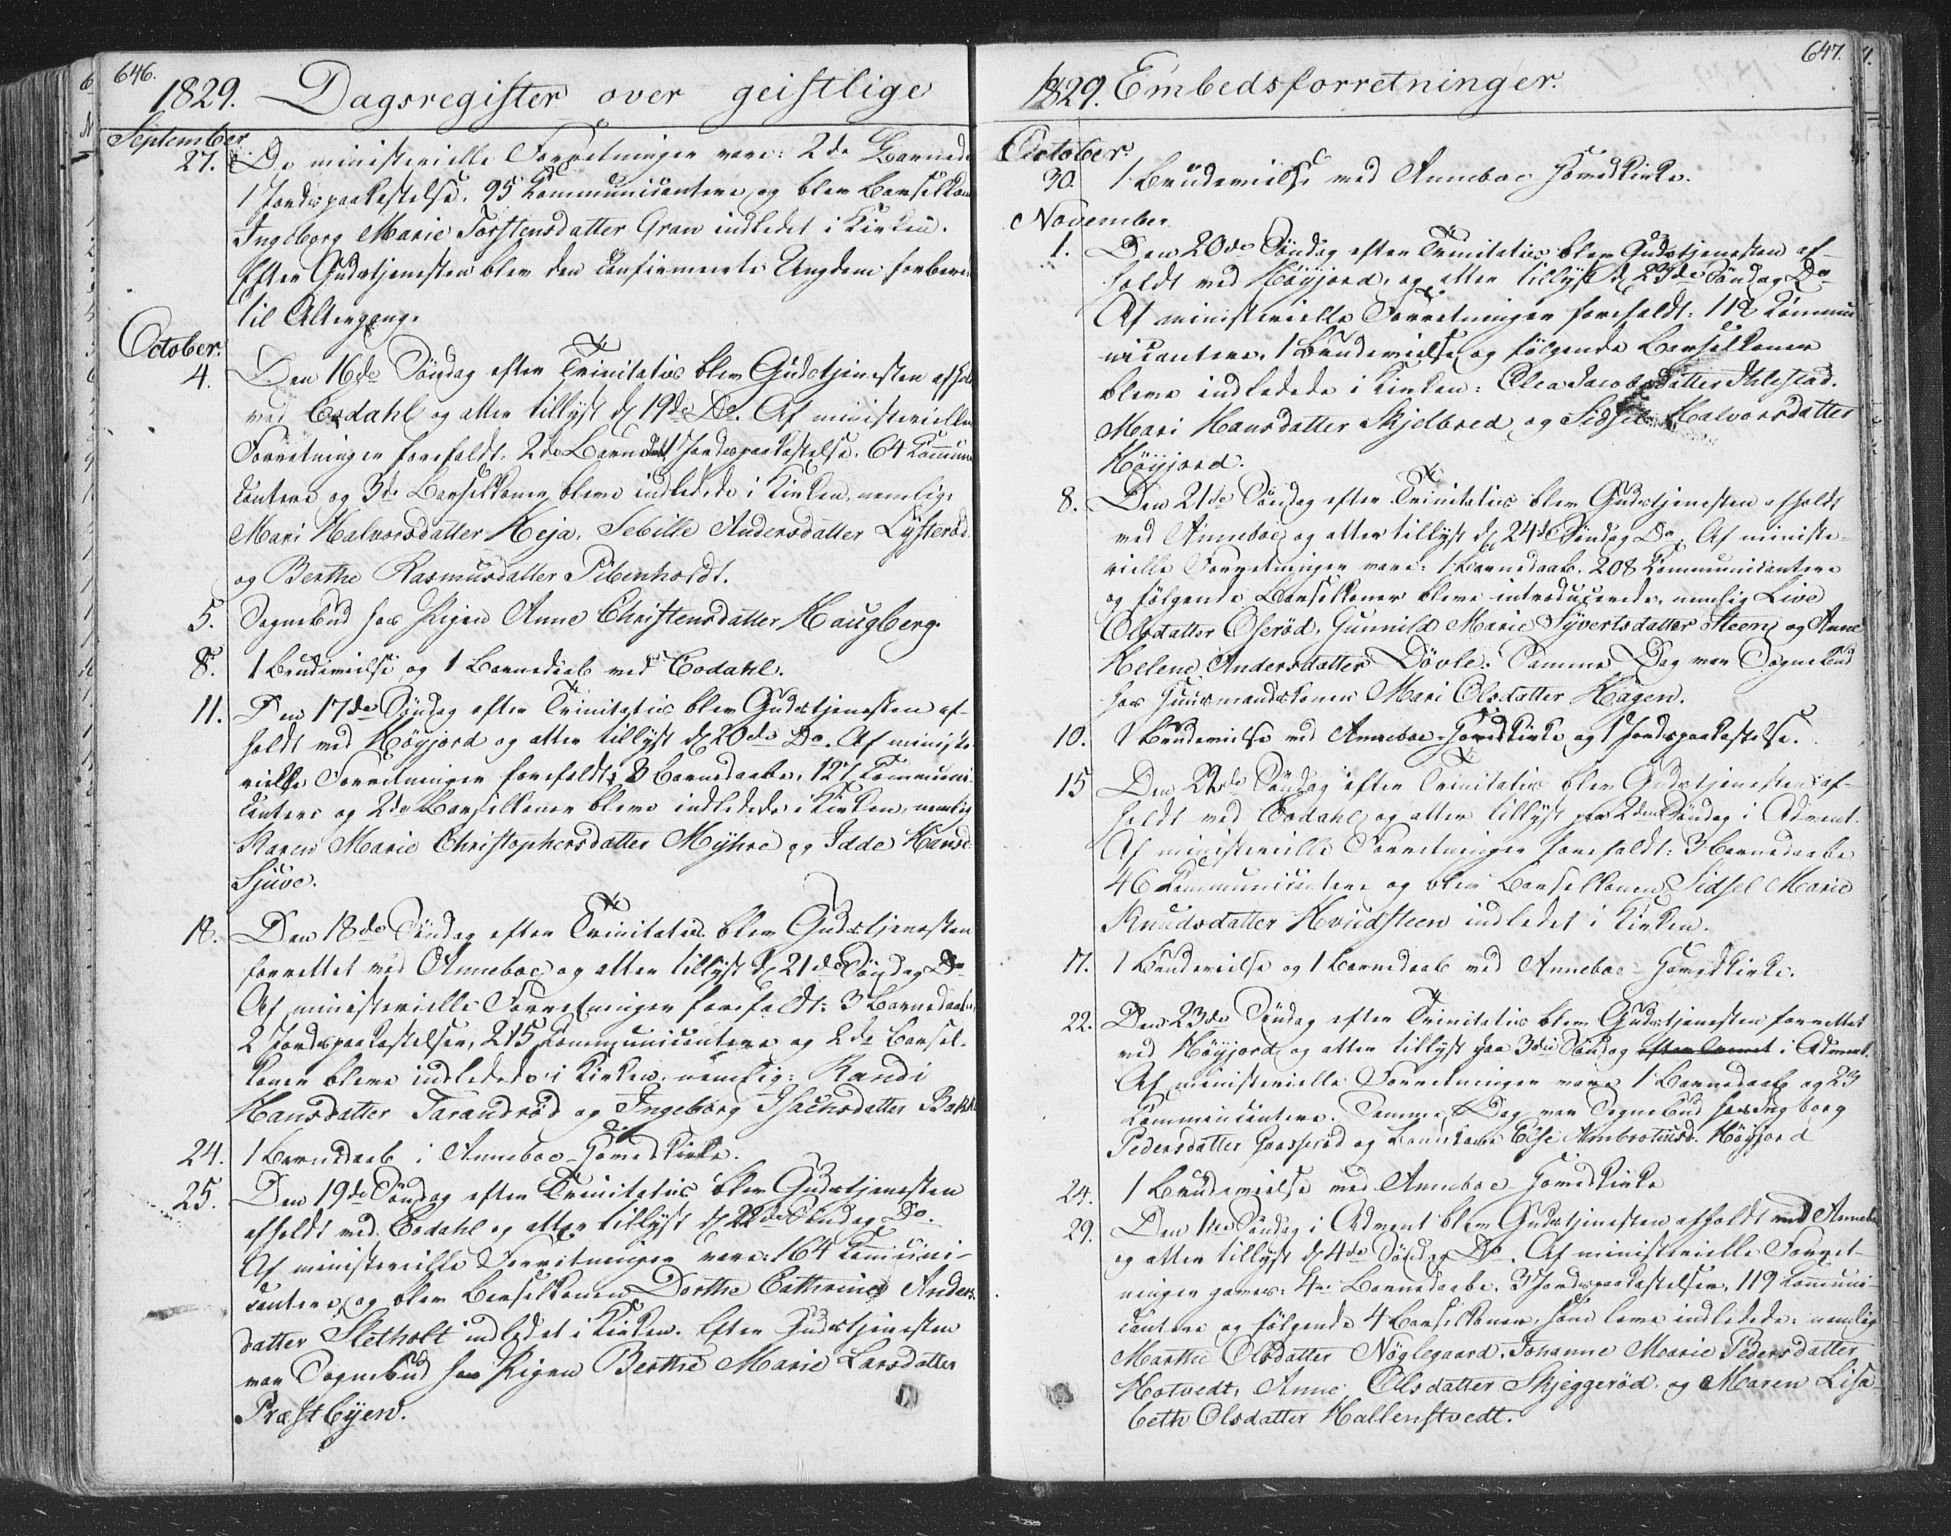 646.
1829. Dagsregister over geistlige
September
27. De ministerielle Forretninger vare: 2de Barned
1 Jordspaakastelse, 95 Kommunicantere, og blev Barselkon
Ingeborg Marie Torstensdatter Gran indledet i Kirken.
Efter Gudstjenesten blev den confirmerte Ungdom forbere
til Altergang.
October.
4. Den 16de Søndag efter Trinitatis blev Gudstjenesten afhol
ved Eodahl og atter tillyst d. 19de Do. Af ministerielle
Forretninger forefaldt: 2de Barned 1 Jordspaakastelse. 64 Kommuni
cantere og 3de Barselkoner bleve indledede i Kirken, nemlig:
Mari Halvorsdatter Heja, Sebille Andersdatter Lysterød
og Berthe Rasmusdatter Pibenholdt.
5. Sognebud hos Pigen Anne Christensdatter Haugberg.
8. 1 Brudevielse og 1 Barnedaab ved Eodahl.
11. Den 17de Søndag efter Trinitatis blev Gudstjenesten af-
holdt ved Høyjord og atter tillyst d. 20de Do. Af ministe
rielle Forretninger forefaldt: 3 Barnedaabe, 127 Kommuni
cantere og 2de Barselkoner bleve indledede i Kirken, nemlig
Karen Marie Christophersdatter Myhre og Idde Hansd.
Sjuve.
18. Den 18de Søndag efter Trinitatis blev Gudstjenesten
forrettet ved Anneboe og atter tillyst d. 21de Søndag Do
Af ministerielle Forretninger forefaldt: 3 Barnedaabe,
2 Jordspaakastelser, 215 Kommunicantere og 2de Barsel-
koner bleve indledede i Kirken, nemlig: Randi
Hansdatter Tarandrød og Ingeborg Isachsdatter Bakk
24. 1 Barnedaab i Anneboe-Hovedkirke.
25. Den 19de Søndag efter Trinitatis blev Gudstjenesten
afholdt ved Eodahl og atter tillyst d. 22de Søndag Do.
Af ministerielle Forretninger vare: 164 Kommuni-
cantere, og blev Barselkonen Dorthe Cathrine Anders
datter Sletholt indledet i Kirken. Efter Gudstjenesten
var Sognebud hos Pigen Berthe Marie Larsdatter
Præstbyen.
647.
1829. Embedsforretninger.
October.
30. 1 Brudevielse ved Anneboe Hovedkirke.
November
1. Den 20de Søndag efter Trinitatis blev Gudstjenesten af-
holdt ved Høyjord, og atter tillyst d. 23de Søndag Do
Af ministerielle Forretninger forefaldt: 112 Kommu
nicantere, 1 Brudevielse og følgende Barselkoner
bleve indledede i Kirken: Elea Jacobsdatter Ihlestad.
Mari Hansdatter Skjelbred og Sidsel Halvorsdatter
Høyjord.
8. Den 21de Søndag efter Trinitatis blev Gudstjenesten afholdt
ved Anneboe og atter tillyst d. 24de Søndag Do. Af ministe-
rielle Forretninger vare: 1 Barnedaab, 208 Kommunicantere
og følgende Barselkoner bleve introducerede, nemlig Live
Olsdatter Oserød, Gunnild Marie Syvertsdatter Steen og Anne
Helene Andersdatter Døvle. Samme Dag var Sognebud
hos Huusmandskonen Mari Olsdatter Hagen.
10. 1 Brudevielse ved Anneboe-Hovedkirke og 1 Jordspaakastelse.
15 Den 22de Søndag efter Trinitatis blev Gudstjenesten af-
holdt ved Eodahl og atter tillyst paa 2den Søndag i Advent.
Af ministerielle Forretninger forefaldt: 3 Barnedaabe
46 Kommunicantere og blev Barselkonen Sidsel Marie
Knudsdatter Hvidsteen indledet i Kirken.
17. 1 Brudevielse og 1 Barnedaab ved Anneboe-Hovedkirke.
22. Den 23de Søndag efter Trinitatis blev Gudstjenesten forrettet
ved Høyjord og atter tillyst paa 3die Søndag i Advent.
Af ministerielle Forretninger vare 1 Barnedaab og 23
Kommunicantere. Samme Dag var Sognebud hos Ingborg
Pedersdatter Haasserød og Elsi Ambrotiusd. Høyjord
24. 1 Brudevielse ved Anneboe Hovedkirke
29. Den 1ste Søndag i Advent blev Gudstjenesten afholdt ved Annebo
og atter tillyst d. 4de Søndag Do. Af ministerielle Forret-
ninger gaves: 4re Barnedaabe, 3 Jordspaakastelser, 119 Kommuni-
cantere og følgende 4 Barselkoner, som bleve indledede: nemlig
Marthe Olsdatter Nøglegaard, Johanne Marie Pedersdatter
Hotvedt, Anne Olsdatter Skjeggerød, og Maren Lisa
beth Olsdatter Hallenstvedt.